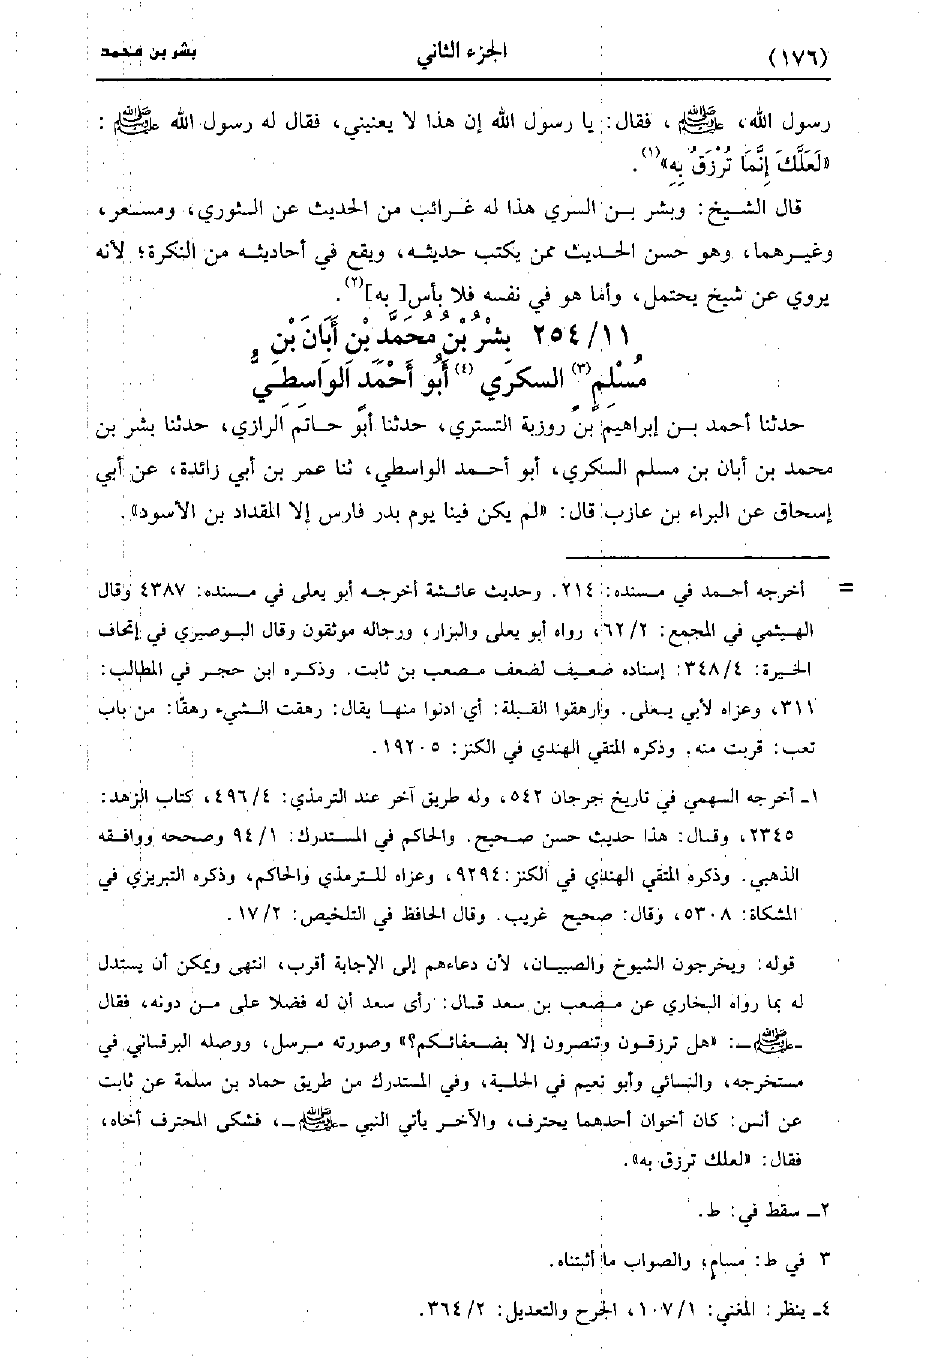 (١٧٦) الجزء الثاني بشر بن محمد
رسول الله، ﷺ، فقال: يا رسول الله إن هذا لا يعنيني، فقال له رسول الله ﷺ :
«لَعَلَّكَ إِنَّمَا تُرْزَقُ بِهِ»(١).
قال الشيخ: وبشر بن السري هذا له غرائب من الحديث عن الثوري، ومسعر،
وغيرهما، وهو حسن الحديث ممن يكتب حديثه، ويقع في أحاديثه من النكرة؛ لأنه
يروي عن شيخ يحتمل، وأما هو في نفسه فلا بأس[ به](٢).
٢٥٤/١١ بِشْرُ بْنُ مُحَمَّدِ بْنِ أَبَانَ بْنِ
مُسْلِمٍ(٣) السكري (٤) أَبُو أَحْمَدَ الْوَاسِطِيُّ
حدثنا أحمد بن إبراهيم بن روزبة التستري، حدثنا أبو حاتم الرازي، حدثنا بشر بن
محمد بن أبان بن مسلم السكري، أبو أحمد الواسطي، ثنا عمر بن أبي زائدة، عن أبي
إسحاق عن البراء بن عازب قال: «لم يكن فينا يوم بدر فارس إلا المقداد بن الأسود».
= أخرجه أحمد في مسنده: ٢١٤. وحديث عائشة أخرجه أبو يعلى في مسنده: ٤٣٨٧ وقال
الهيثمي في المجمع: ٦٢/٢، رواه أبو يعلى والبزار، ورجاله موثقون وقال البوصيري في إتحاف
الخيرة: ٣٤٨/٤: إسناده ضعيف لضعف مصعب بن ثابت. وذكره ابن حجر في المطالب:
٣١١، وعزاه لأبي يعلى. وارهقوا القبلة: أي ادنوا منها يقال: رهقت الشيء رهقًا: من باب
تعب: قربت منه. وذكره المتقي الهندي في الكنز: ١٩٢٠٥.
١ـ أخرجه السهمي في تاريخ جرجان ٥٤٢، وله طريق آخر عند الترمذي: ٤٩٦/٤، كتاب الزهد:
٢٣٤٥، وقال: هذا حديث حسن صحيح. والحاكم في المستدرك: ٩٤/١ وصححه ووافقه
الذهبي. وذكره المتقي الهندي في الكنز: ٩٢٩٤، وعزاه للترمذي والحاكم، وذكره التبريزي في
المشكاة: ٥٣٠٨، وقال: صحيح غريب. وقال الحافظ في التلخيص: ١٧/٢.
قوله: ويخرجون الشيوخ والصبيان، لأن دعاءهم إلى الإجابة أقرب، انتهى ويمكن أن يستدل
له بما رواه البخاري عن مصعب بن سعد قال: رأى سعد أن له فضلا على من دونه، فقال
ـﷺـ: «هل ترزقون وتنصرون إلا بضعفائكم؟» وصورته مرسل، ووصله البرقاني في
مستخرجه، والنسائي وأبو نعيم في الحلية، وفي المستدرك من طريق حماد بن سلمة عن ثابت
عن أنس: كان أخوان أحدهما يحترف، والآخر يأتي النبي ـﷺـ، فشكى المحترف أخاه،
فقال: «لعلك ترزق به».
٢ـ سقط في: ط.
٣ في ط: مسام، والصواب ما أثبتناه.
٤ـ ينظر: المغني: ١٠٧/١، الجرح والتعديل: ٣٦٤/٢.